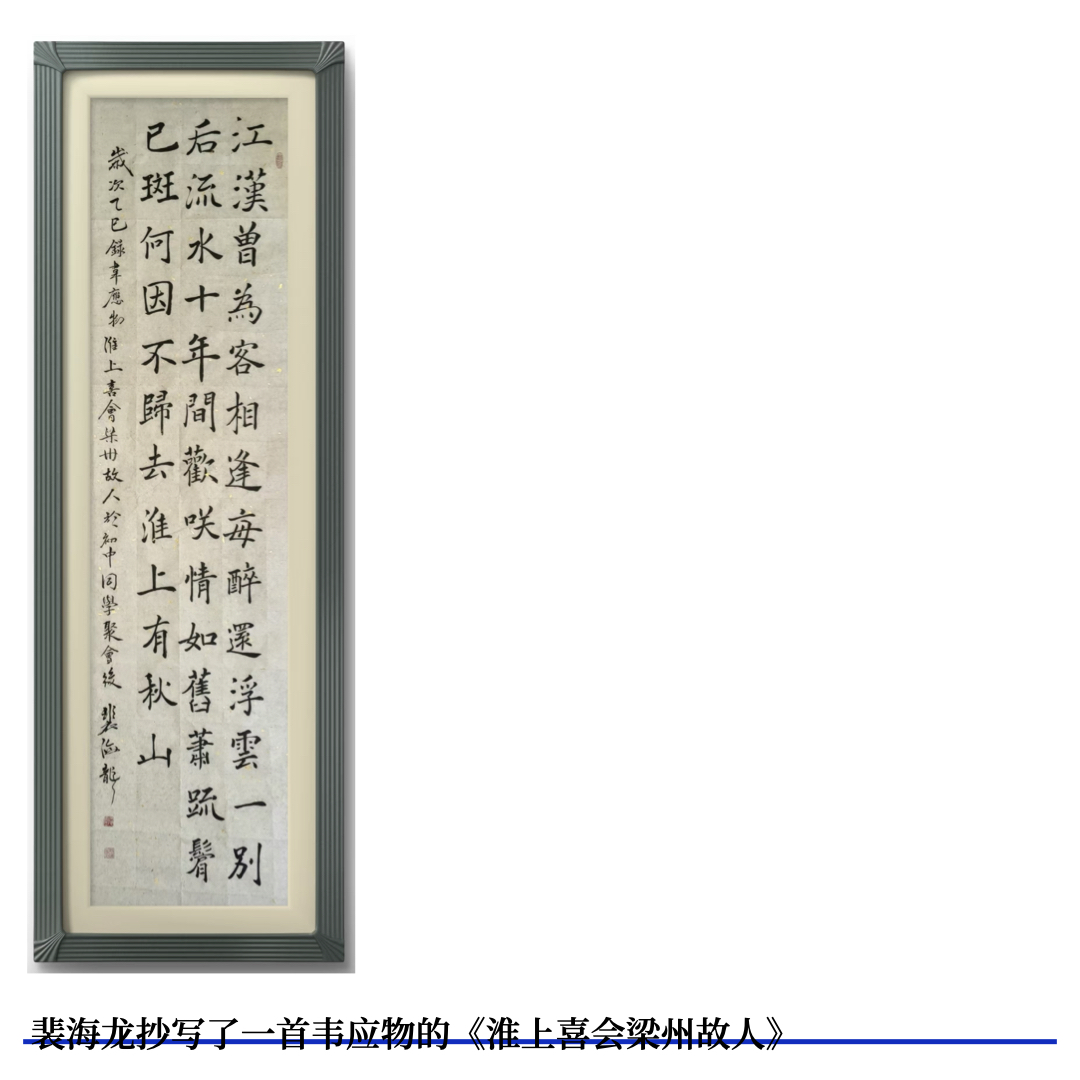 江漢曾為客相逢每醉還浮雲一别
后流水十年間歡咲情如舊蕭疏鬢
已斑何因不歸去淮上有秋山
歲次乙巳録韋應物淮上喜會梁州故人於初中同學聚會後 裴海龍
裴海龙抄写了一首韦应物的《淮上喜会梁州故人》